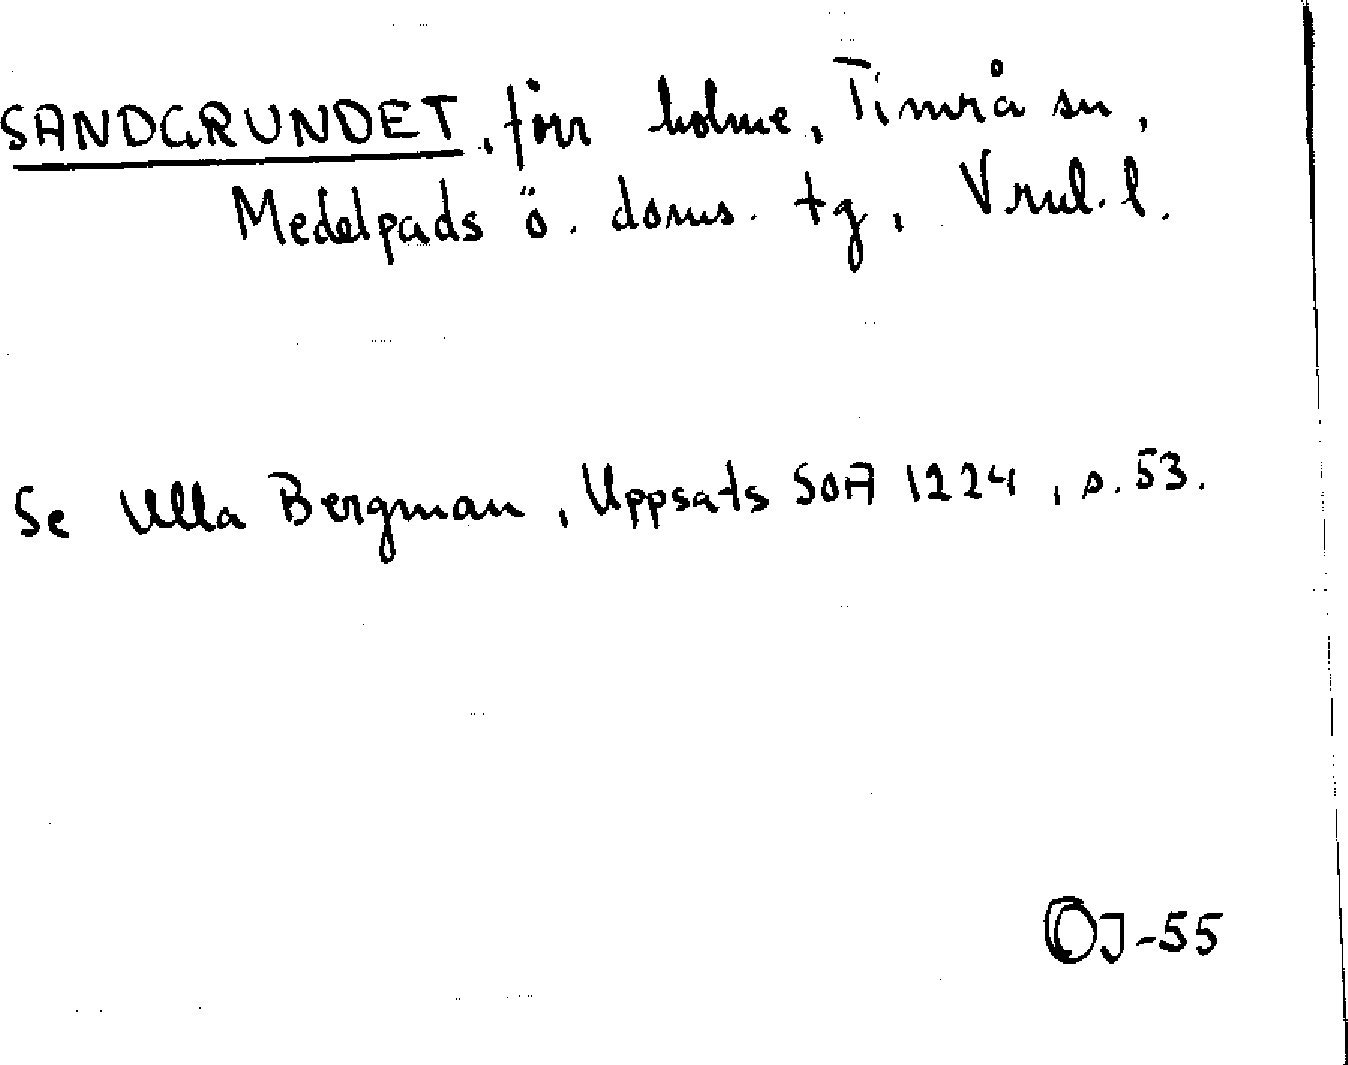 SANDGRUNDET, förr holme, Timrå sn,
Medelpads ö. doms. tg, Vnl. l.
Se Ulla Bergman, Uppsats SOA 1224, s. 53.
OJ-55